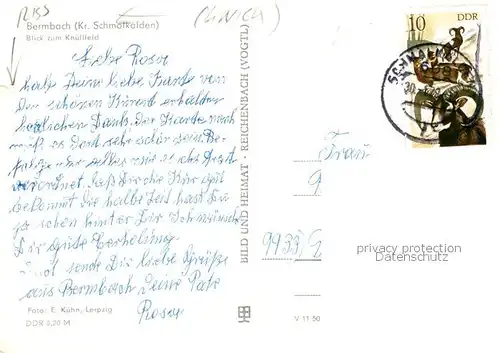 Bermbach (Kr. Schmalkalden)
Blick zum Knüllfeld
Liebe Rosa
habe Deine liebe Karte von
Der schönen Kurort erhalten
herzlichen Dank. Der Karte nach
muß es Dort sehr schön sein. Be-
folge nur alles wie es der Arzt
verordnet. Daß Dir die Kur gut
bekommt. Die halbe Zeit hast Du
ja schon hinter Dir. Ich wünsche
Dir gute Erholung
und sende Dir liebe Grüße
aus Bermbach Deine Pate
Rosa
Foto: E. Kühn, Leipzig
DDR 0,20 M
BILD UND HEIMAT · REICHENBACH (VOGTL)
V 11 50
10 DDR
Frau
9
privacy protection
Datenschutz